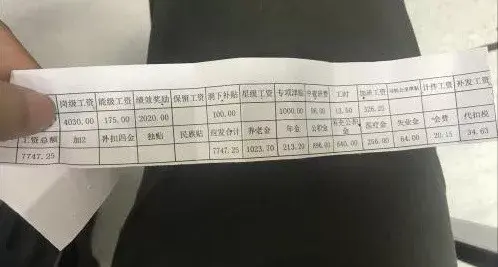 岗级工资 能级工资 绩效奖励 保留工资 井下补贴 星级工资 专项津贴 工时 加班工资 计件工资 补发工资
4030.00 175.00 2020.00 100.00 1000.00 13.50 326.25
工资总额 加2 补扣四金 独贴 民族贴 应发合计 养老金 年金 公积金 医疗金 失业金 会费 代扣税
7747.25 7747.25 1023.70 213.20 256.00 64.00 20.15 34.63